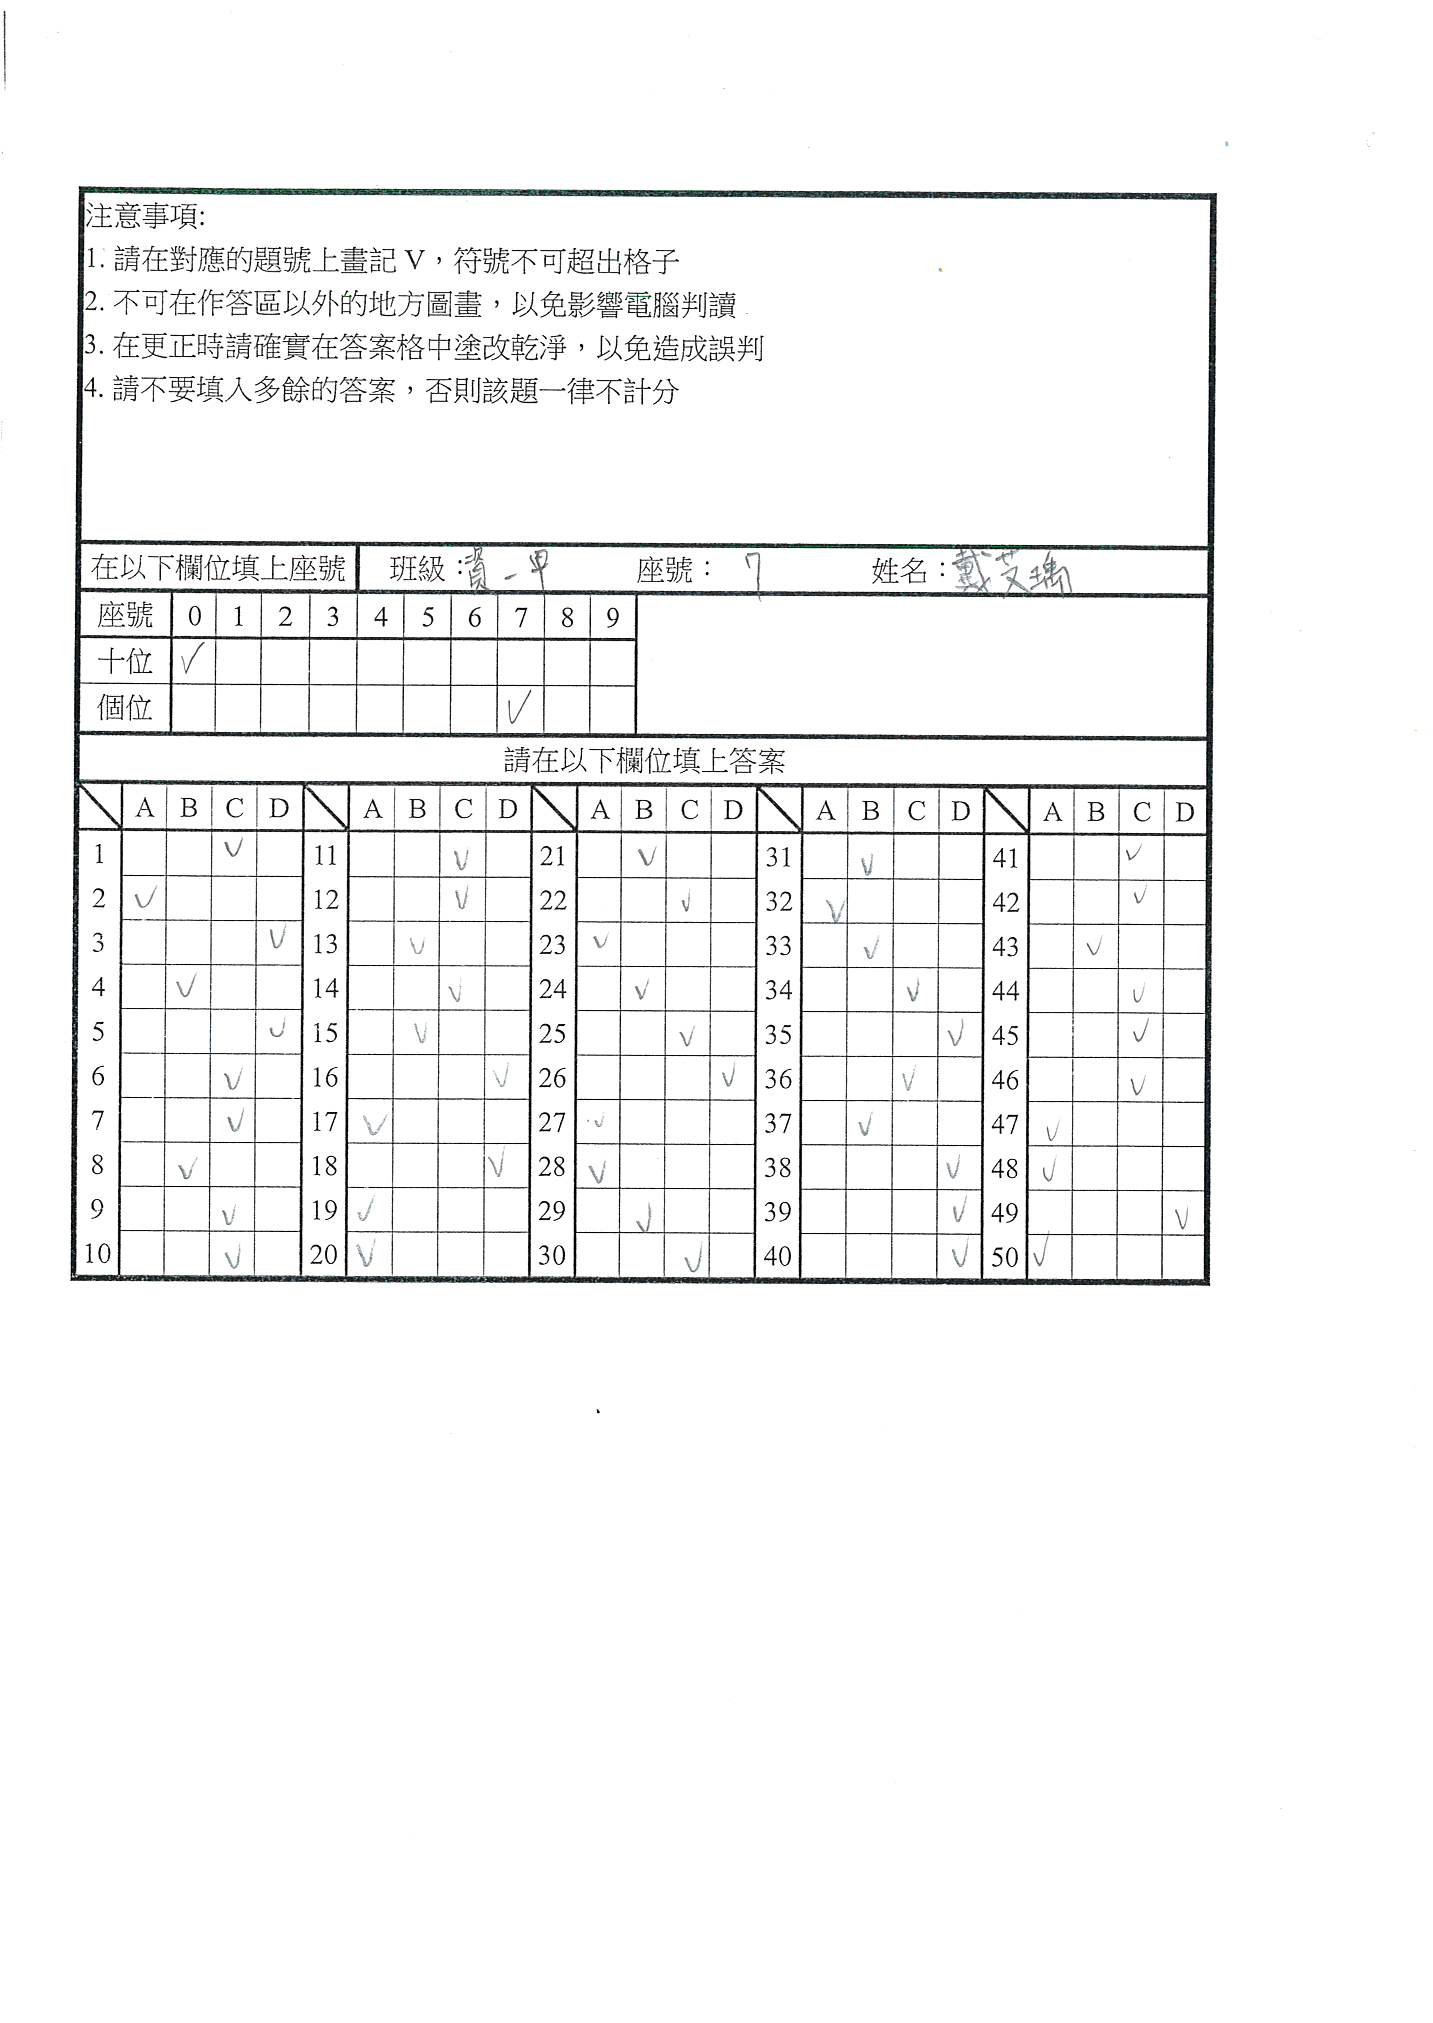 注意事項:
1. 請在對應的題號上畫記 V，符號不可超出格子
2. 不可在作答區以外的地方圖畫，以免影響電腦判讀
3. 在更正時請確實在答案格中塗改乾淨，以免造成誤判
4. 請不要填入多餘的答案，否則該題一律不計分
在以下欄位填上座號 班級：資一甲 座號： 7 姓名：戴苡瑀
座號 0 1 2 3 4 5 6 7 8 9
十位 V
個位 V
請在以下欄位填上答案
A B C D A B C D A B C D A B C D A B C D
1 V 11 V 21 V 31 V 41 V
2 V 12 V 22 V 32 V 42 V
3 V 13 V 23 V 33 V 43 V
4 V 14 V 24 V 34 V 44 V
5 V 15 V 25 V 35 V 45 V
6 V 16 V 26 V 36 V 46 V
7 V 17 V 27 V 37 V 47 V
8 V 18 V 28 V 38 V 48 V
9 V 19 V 29 V 39 V 49 V
10 V 20 V 30 V 40 V 50 V